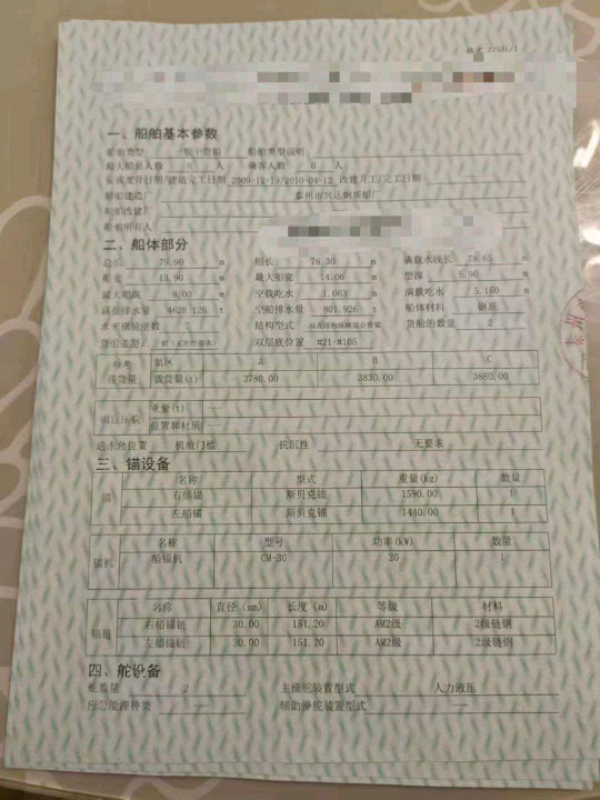 一、船舶基本参数
船舶类型 一般干货船 船舶类型说明 —
船员人数 人 乘客人数 0 人
安放龙骨日期/建造完工日期 2009-12-19/2010-04-12 改建开工/完工日期 —
船舶建造厂 泰州市兴达钢质船厂
船舶改建厂
船舶所有人
二、船体部分
总长 79.90 m 船长 76.30 m 满载水线长 78.65 m
船宽 13.90 m 最大船宽 14.06 m 型深 5.90 m
最大船高 9.00 m 空载吃水 1.063 m 满载吃水 5.150 m
满载排水量 4628.126 t 空船排水量 801.926 t 船体材料 钢质
水密横舱壁数 结构型式 货舱的数量 2
货舱盖型式 双层底位置 #21-#105
参考载货量 航区 A B C
载货量(t) 3780.00 3830.00 3880.00
固定压载 重量(t) —
位置和材质 —
进水角位置 机舱门槛 抗沉性 无要求
三、锚设备
锚 名称 型式 重量(kg) 数量
右艏锚 斯贝克锚 1590.00 1
左艏锚 斯贝克锚 1440.00 1
锚机 名称 型号 功率(kW) 数量
艏锚机 CM-30 20 1
锚链 名称 直径(mm) 长度(m) 等级 材料
右艏锚链 30.00 151.20 AM2级 2级链钢
左艏锚链 30.00 151.20 AM2级 2级链钢
四、舵设备
舵数量 2 主操舵装置型式 人力液压
应急能源种类 — 辅助操舵装置型式 —